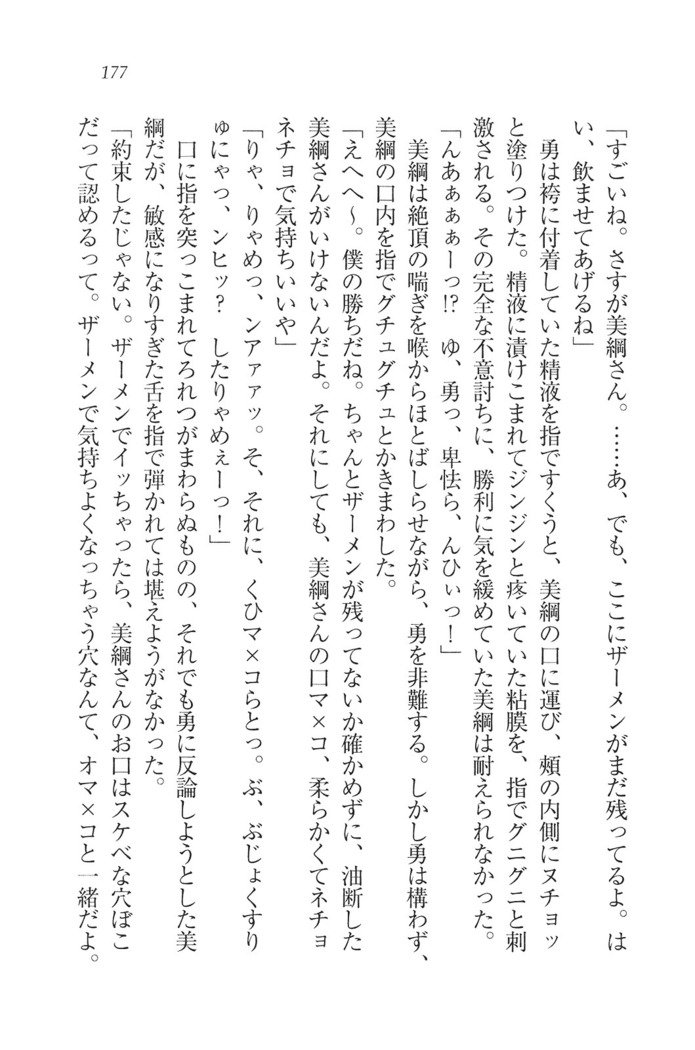 177
「すごいね。さすが美綱さん。……あ、でも、ここにザーメンがまだ残ってるよ。は
い、飲ませてあげるね」
勇は袴に付着していた精液を指ですくうと、美綱の口に運び、頰の内側にヌチョッ
と塗りつけた。精液に漬けこまれてジンジンと疼いていた粘膜を、指でグニグニと刺
激される。その完全な不意討ちに、勝利に気を緩めていた美綱は耐えられなかった。
「んあぁぁぁーっ!?　ゆ、勇っ、卑怯ら、んひぃっ！」
美綱は絶頂の喘ぎを喉からほとばしらせながら、勇を非難する。しかし勇は構わず、
美綱の口内を指でグチュグチュとかきまわした。
「えへへ～。僕の勝ちだね。ちゃんとザーメンが残ってないか確かめずに、油断した
美綱さんがいけないんだよ。それにしても、美綱さんの口マ×コ、柔らかくてネチョ
ネチョで気持ちいいや」
「りゃ、りゃめっ、ンアァァッ。そ、それに、くひマ×コらとっ。ぶ、ぶじょくすり
ゅにゃっ、ンヒッ？　したりゃめぇーっ！」
口に指を突っこまれてろれつがまわらぬものの、それでも勇に反論しようとした美
綱だが、敏感になりすぎた舌を指で弾かれては堪えようがなかった。
「約束したじゃない。ザーメンでイッちゃったら、美綱さんのお口はスケベな穴ぼこ
だって認めるって。ザーメンで気持ちよくなっちゃう穴なんて、オマ×コと一緒だよ。